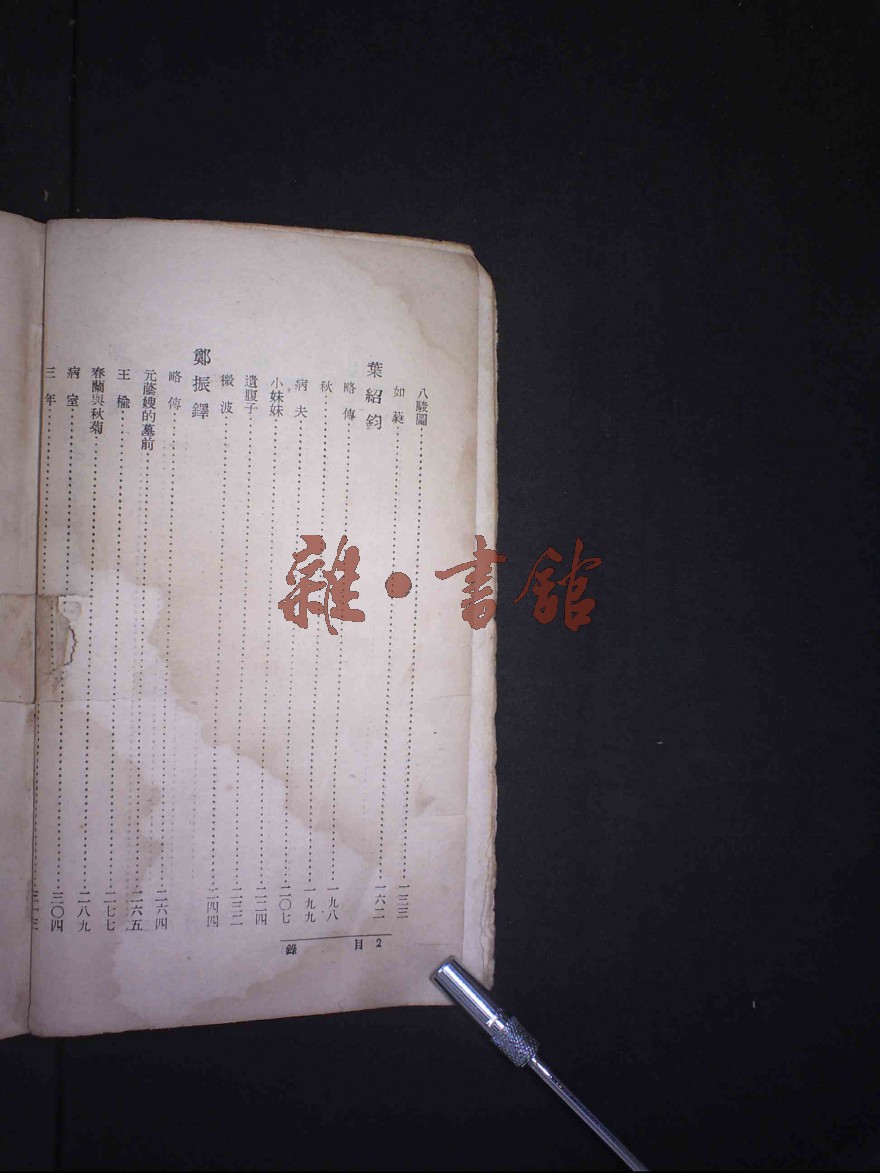 八駿圖……一三三
如蕤……一六二
葉紹鈞
略傳……一九八
秋……一九九
病夫……二〇七
小妹妹……二二四
遺腹子……二三二
微波……二四四
鄭振鐸
略傳……二六四
元蔭嫂的墓前……二六五
王榆……二七七
春蘭與秋菊……二八九
病室……三〇四
三年……三一三
目錄 2
雜·書館